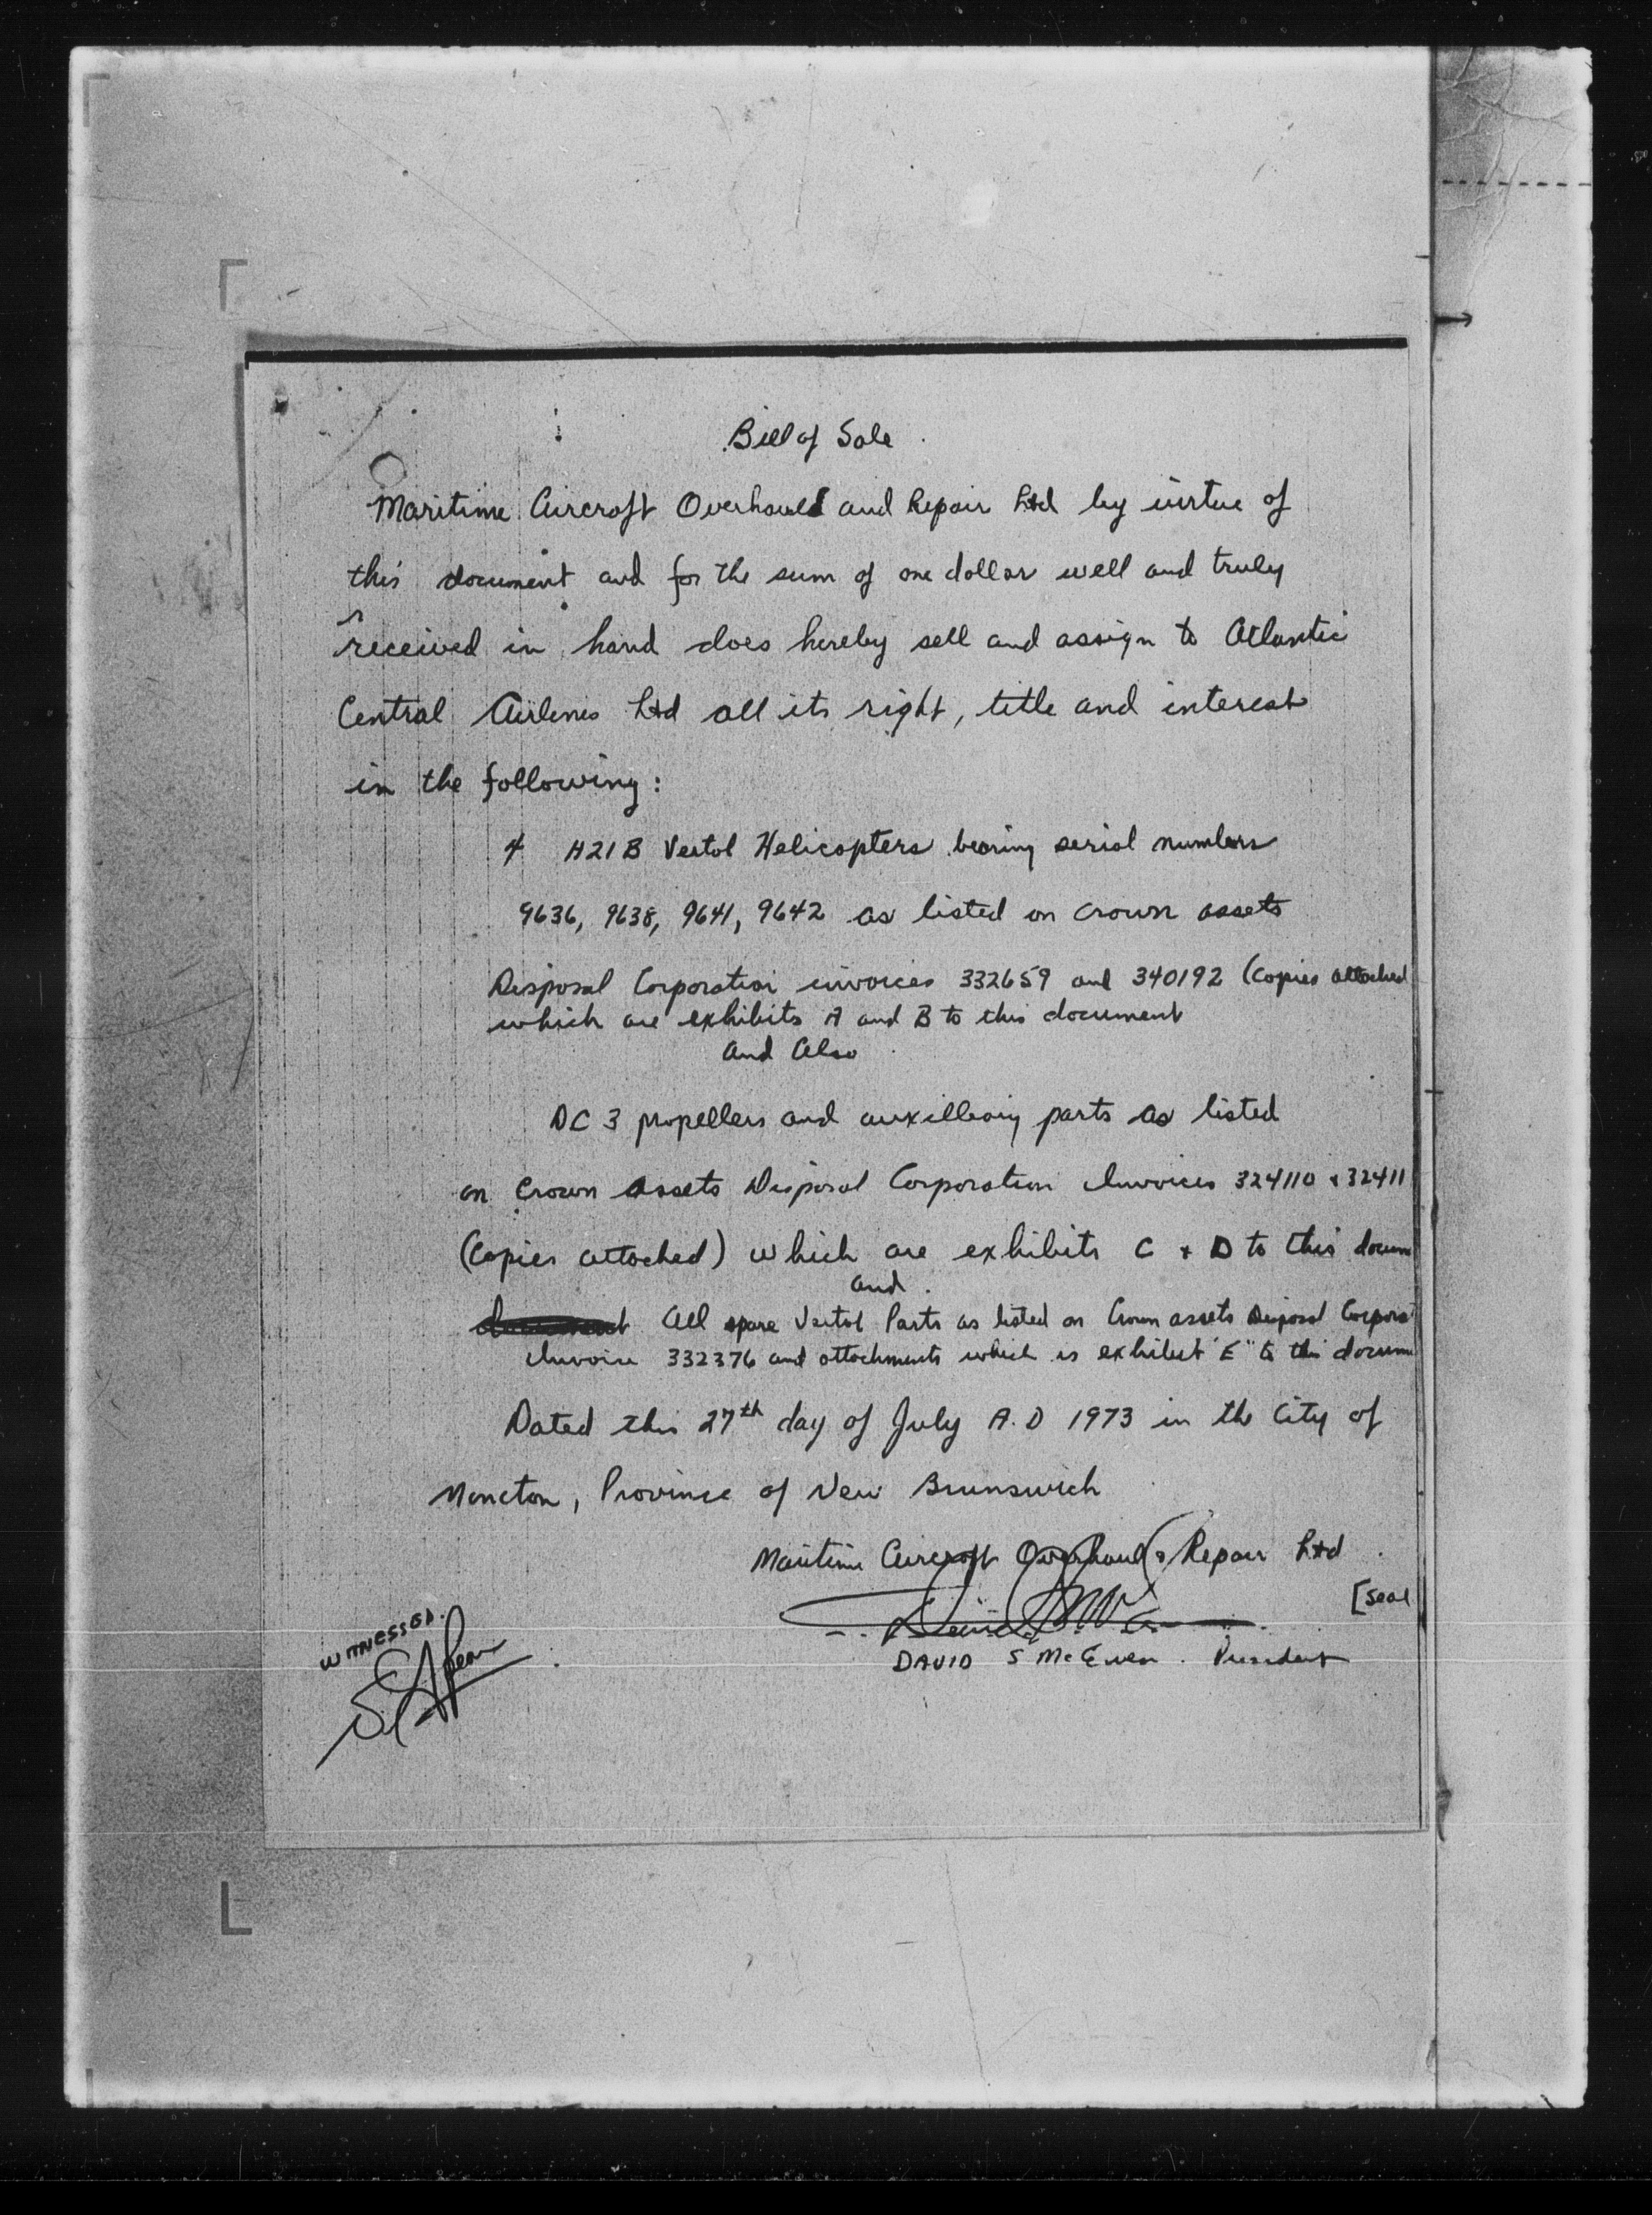 Bill of Sale
Maritime Aircraft Overhaul and Repair Ltd by virtue of
this document and for the sum of one dollar well and truly
received in hand does hereby sell and assign to Atlantic
Central Airlines Ltd all its right, title and interest
in the following:
4 H21B Vertol Helicopters bearing serial numbers
9636, 9638, 9641, 9642 as listed on crown assets
Disposal Corporation invoices 332659 and 340192 (copies attached
which are exhibits A and B to this document
and Also
DC 3 propellers and auxilleary parts as listed
on Crown Assets Disposal Corporation Invoices 324110 & 32411
(copies attached) which are exhibits C + D to this docum
and
All spare Vertol Parts as listed on Crown assets Disposal Corporat
Invoice 332376 and attachments which is exhibit "E" to this docum
Dated this 27th day of July A.D 1973 in the City of
Moncton, Province of New Brunswick
Maritime Aircraft Overhaul & Repair Ltd
[Seal
DAVID S McEwen. President
WITNESSED.